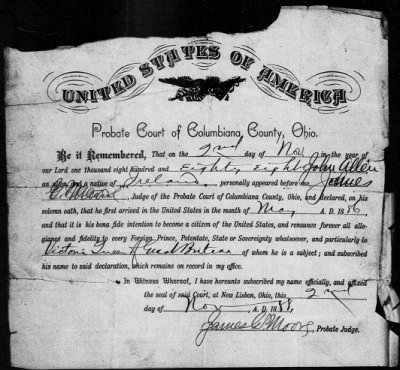 UNITED STATES OF AMERICA
Probate Court of Columbiana County, Ohio.
Be it Remembered, That on the 2nd day of Nov in the year of
our Lord one thousand eight hundred and Eighty Eight John Allen
an alien, and a native of Ireland personally appeared before me, James
C. Moore Judge of the Probate Court of Columbiana County, Ohio, and declared, on his
solemn oath, that he first arrived in the United States in the month of May A. D. 1886
and that it is his bona fide intention to become a citizen of the United States, and renounce forever all alle-
giance and fidelity to every Foreign Prince, Potentate, State or Sovereignty whatsoever, and particularly to
Victoria Queen of Great Britain of whom he is a subject; and subscribed
his name to said declaration, which remains on record in my office.
In Witness Whereof, I have hereunto subscribed my name officially, and affixed
the seal of said Court, at New Lisbon, Ohio, this 2nd
day of Nov A. D. 1888.
James C. Moore, Probate Judge.